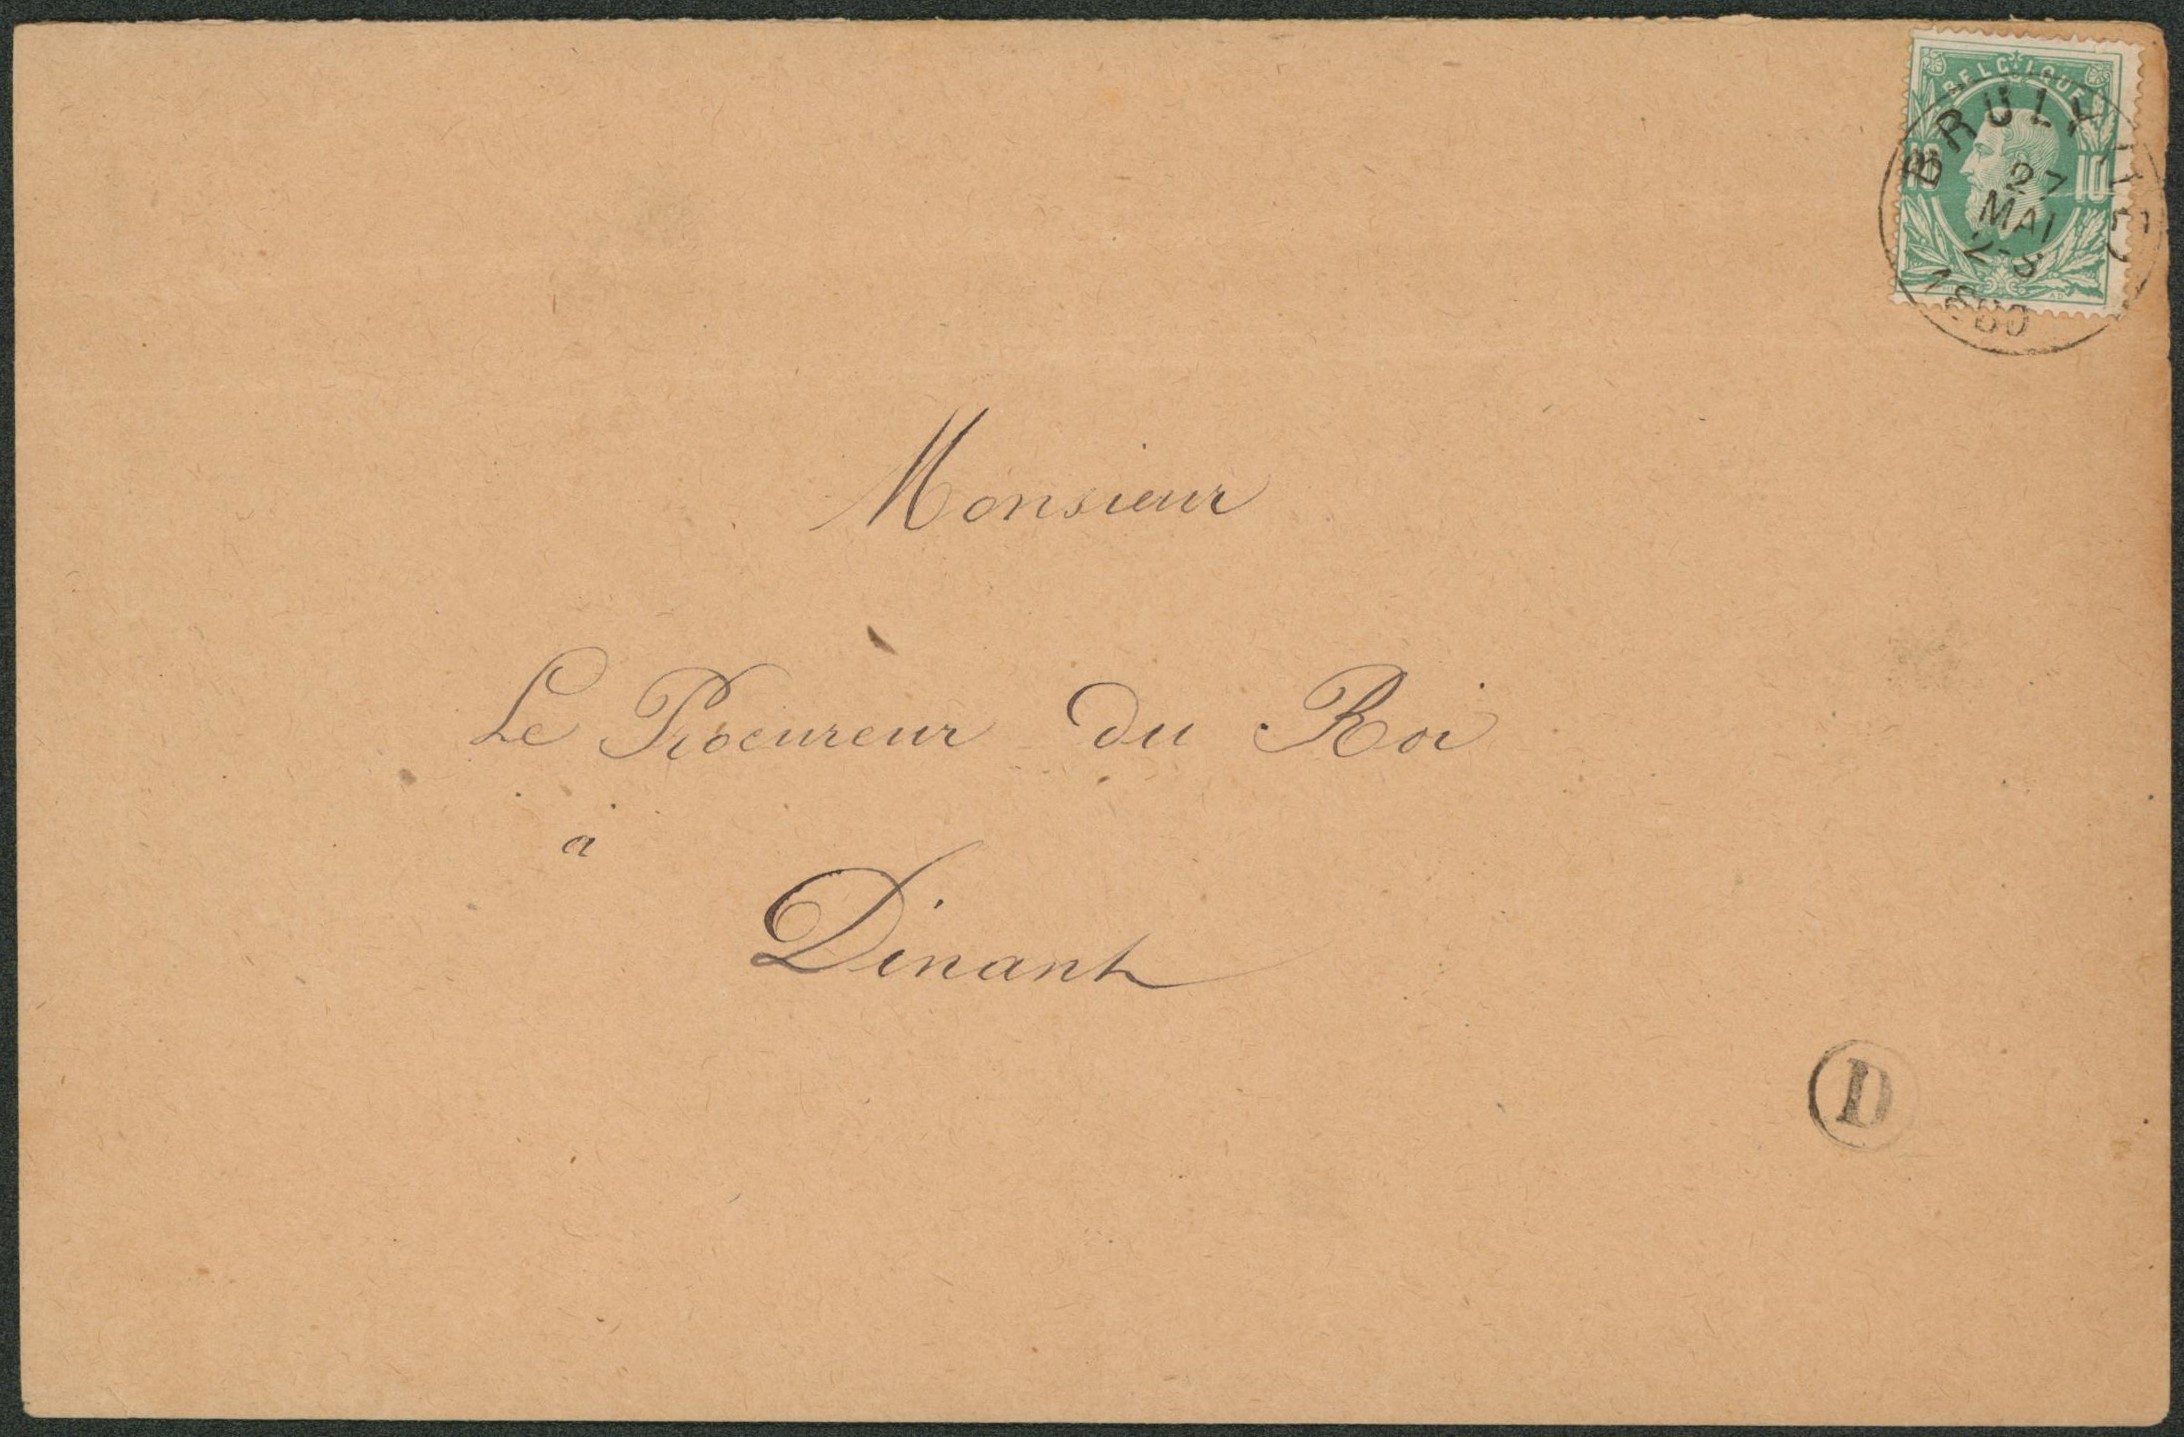 BELGIQUE
10 10
BRULY
27
MAI
2-3
1880
Monsieur
Le Procureur du Roi
à
Dinant
D